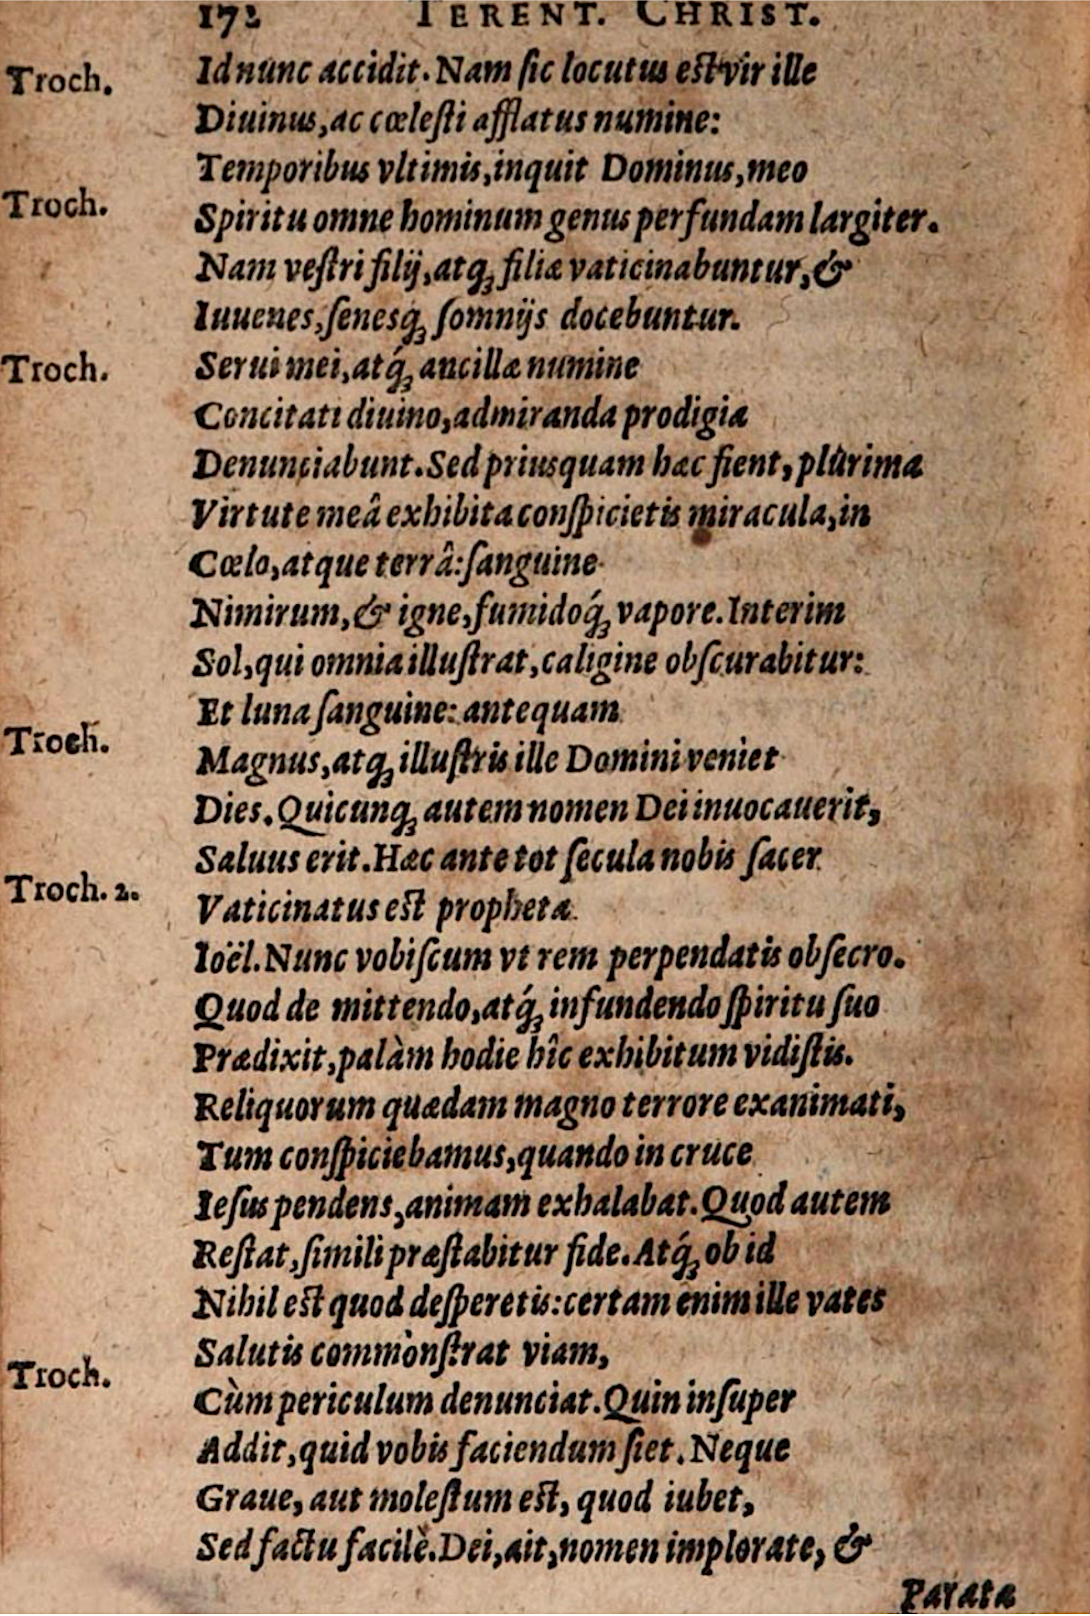 172 TERENT. CHRIST.
Troch. Id nunc accidit. Nam ſic locutus eſt vir ille
Diuinus, ac cœleſti afflatus numine:
Temporibus vltimis, inquit Dominus, meo
Troch. Spiritu omne hominum genus perfundam largiter.
Nam veſtri filij, atq; filiæ vaticinabuntur, &
Iuuenes, ſenesq; ſomnijs docebuntur.
Troch. Serui mei, atq́; ancillæ numine
Concitati diuino, admiranda prodigia
Denunciabunt. Sed priusquam hæc fient, plurima
Virtute meâ exhibita conſpicietis miracula, in
Cœlo, atque terrâ: ſanguine
Nimirum, & igne, fumidoq́; vapore. Interim
Sol, qui omnia illuſtrat, caligine obſcurabitur:
Et luna ſanguine: antequam
Troch. Magnus, atq; illuſtris ille Domini veniet
Dies. Quicunq; autem nomen Dei inuocauerit,
Saluus erit. Hæc ante tot ſecula nobis ſacer
Troch. 2. Vaticinatus eſt propheta
Ioël. Nunc vobiſcum vt rem perpendatis obſecro.
Quod de mittendo, atq́; infundendo ſpiritu ſuo
Prædixit, palàm hodie hîc exhibitum vidiſtis.
Reliquorum quædam magno terrore exanimati,
Tum conſpiciebamus, quando in cruce
Ieſus pendens, animam exhalabat. Quod autem
Reſtat, ſimili præſtabitur fide. Atq́; ob id
Nihil eſt quod deſperetis: certam enim ille vates
Salutis commonſtrat viam,
Troch. Cùm periculum denunciat. Quin inſuper
Addit, quid vobis faciendum ſiet. Neque
Graue, aut moleſtum eſt, quod iubet,
Sed factu facilè. Dei, ait, nomen implorate, &
Parata